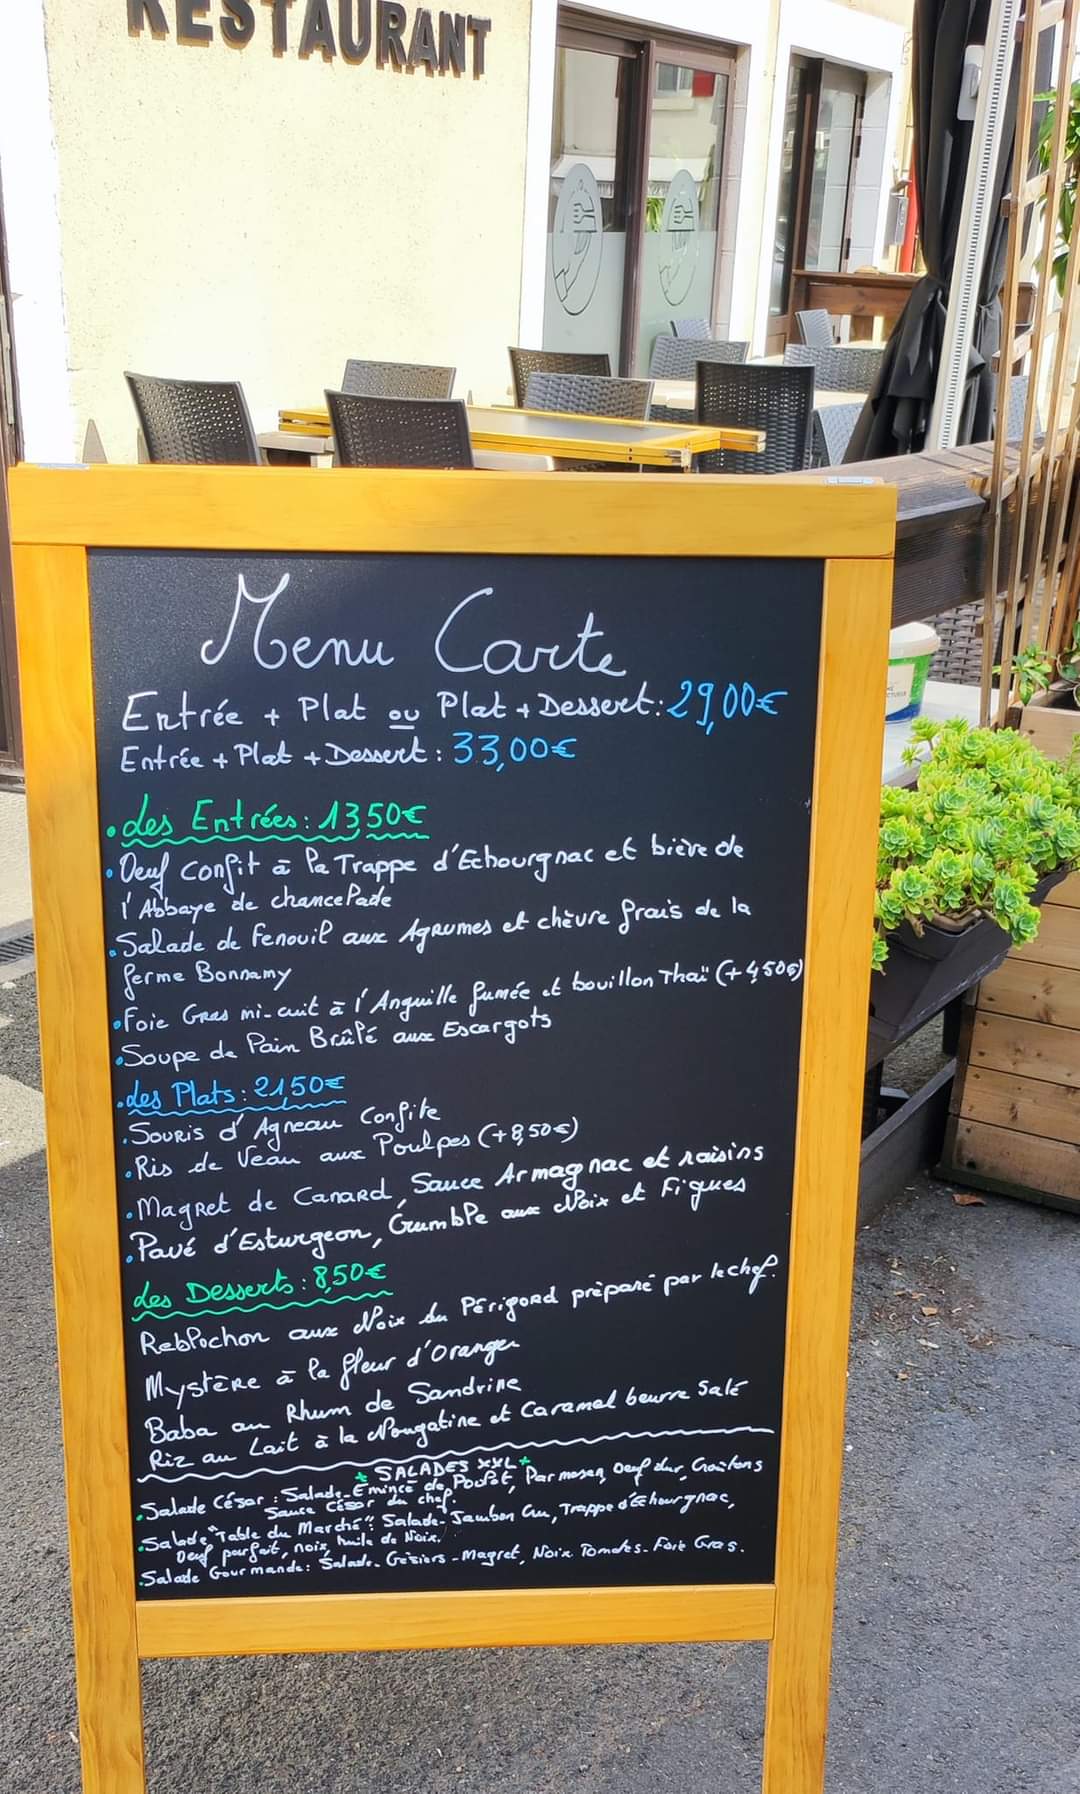 RESTAURANT
Menu Carte
Entrée + Plat ou Plat + Dessert: 29,00€
Entrée + Plat + Dessert: 33,00€
. Les Entrées: 13,50€
. Oeuf Confit à la Trappe d'Echourgnac et bière de
l'Abbaye de chancelade
. Salade de Fenouil aux Agrumes et chèvre frais de la
ferme Bonnamy
. Foie Gras mi-cuit à l'Anguille fumée et bouillon Thaï (+4,50€)
. Soupe de Pain Brûlé aux Escargots
. Les Plats: 21,50€
. Souris d'Agneau Confite
. Ris de Veau aux Poulpes (+8,50€)
. Magret de Canard, Sauce Armagnac et raisins
. Pavé d'Esturgeon, Crumble aux Noix et Figues
Les Desserts: 8,50€
Reblochon aux Noix du Périgord prèparé par le chef.
Mystère à la fleur d'Oranger
Baba au Rhum de Sandrine
Riz au Lait à la Nougatine et Caramel beurre Salé
* SALADES XXL *
. Salade César: Salade-Emincé de Poulet, Parmesan, Oeuf dur, Croûtons
Sauce César du chef.
. Salade "Table du Marché": Salade-Jambon Cru, Trappe d'Echourgnac,
Oeuf parfait, noix, huile de Noix.
. Salade Gourmande: Salade-Gésiers-Magret, Noix Tomates-Foie Gras.